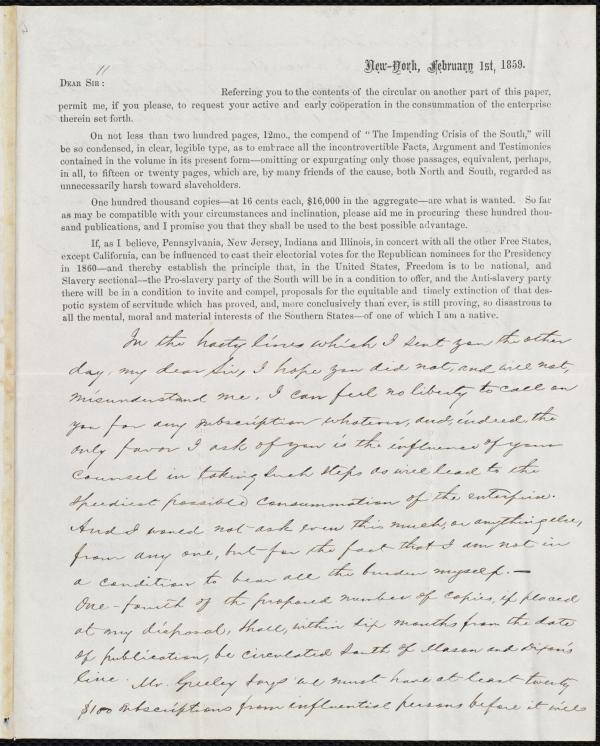 New-York, February 1st, 1859.
11
DEAR SIR:
Referring you to the contents of the circular on another part of this paper,
permit me, if you please, to request your active and early coöperation in the consummation of the enterprise
therein set forth.
On not less than two hundred pages, 12mo., the compend of "The Impending Crisis of the South," will
be so condensed, in clear, legible type, as to embrace all the incontrovertible Facts, Argument and Testimonies
contained in the volume in its present form—omitting or expurgating only those passages, equivalent, perhaps,
in all, to fifteen or twenty pages, which are, by many friends of the cause, both North and South, regarded as
unnecessarily harsh toward slaveholders.
One hundred thousand copies—at 16 cents each, $16,000 in the aggregate—are what is wanted. So far
as may be compatible with your circumstances and inclination, please aid me in procuring these hundred thou-
sand publications, and I promise you that they shall be used to the best possible advantage.
If, as I believe, Pennsylvania, New Jersey, Indiana and Illinois, in concert with all the other Free States,
except California, can be influenced to cast their electoral votes for the Republican nominees for the Presidency
in 1860—and thereby establish the principle that, in the United States, Freedom is to be national, and
Slavery sectional—the Pro-slavery party of the South will be in a condition to offer, and the Anti-slavery party
there will be in a condition to invite and compel, proposals for the equitable and timely extinction of that des-
potic system of servitude which has proved, and, more conclusively than ever, is still proving, so disastrous to
all the mental, moral and material interests of the Southern States—of one of which I am a native.
In the hasty lines which I sent you the other
day, my dear Sir, I hope you did not, and will not,
misunderstand me. I can feel no liberty to call on
you for any subscription whatever, and, indeed, the
only favor I ask of you is the influence of your
counsel in taking such steps as will lead to the
speediest possible consummation of the enterprise.
And I would not ask even this much, or anything else,
from any one, but for the fact that I am not in
a condition to bear all the burden myself.—
One-fourth of the proposed number of copies, if placed
at my disposal, shall, within six months from the date
of publication, be circulated South of Mason and Dixon's
line. Mr. Greeley says we must have at least twenty
$100 subscriptions from influential persons before it will